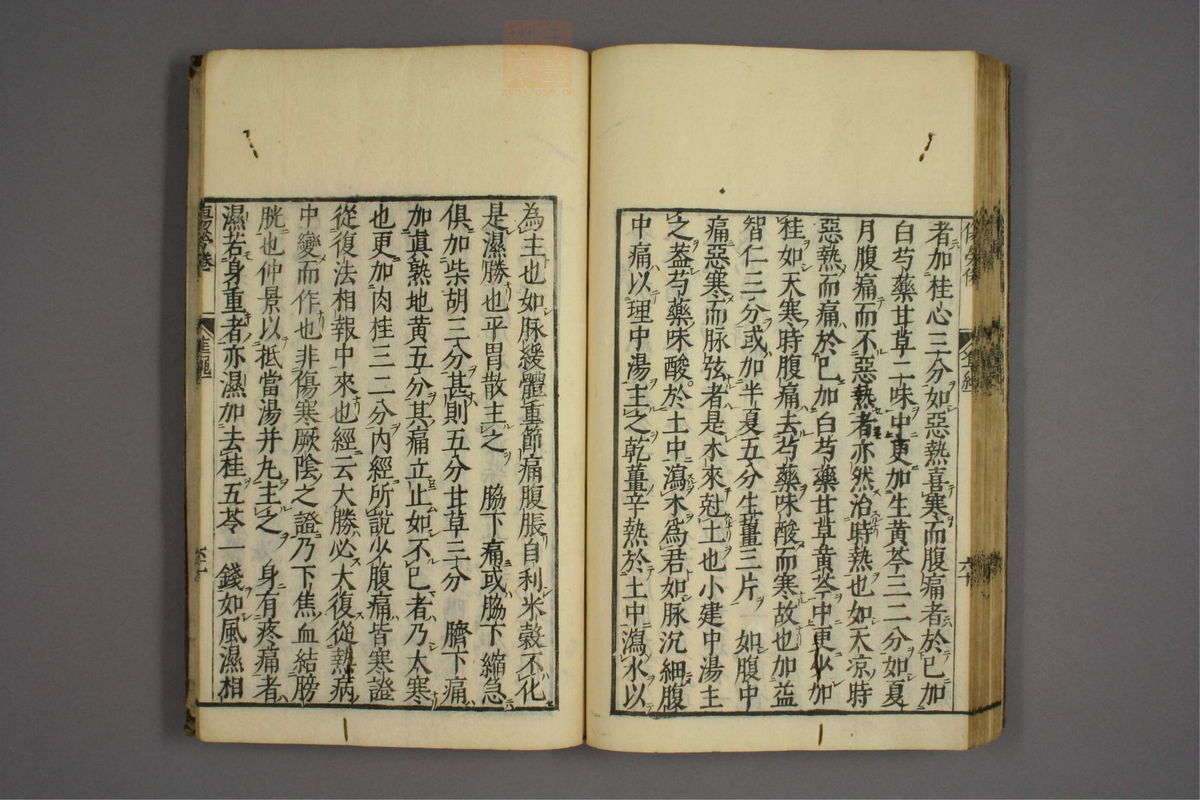 者加桂心三分如惡熱喜寒而腹痛者於已加
白芍藥甘草二味中更加生黃芩三二分如夏
月腹痛而不惡熱者亦然治時熱也如天凉時
惡熱而痛於已加白芍藥甘草黃芩中更少加
桂如天寒時腹痛去芍藥味酸而寒故也加益
智仁三分或加半夏五分生薑三片　如腹中
痛惡寒而脉弦者是木來尅土也小建中湯主
之葢芍藥味酸於土中瀉木爲君如脉沉細腹
中痛以理中湯主之乾薑辛熱於土中瀉水以
為主也如脉緩體重節痛腹脹自利米穀不化
是濕勝也平胃散主之　脇下痛或脇下縮急
俱加柴胡三分甚則五分甘草三分　臍下痛
加眞熟地黄五分其痛立止如不已者乃大寒
也更加肉桂三二分内經所說少腹痛皆寒證
從復法相報中來也經云大勝必大復從熱病
中變而作也非傷寒厥陰之證乃下焦血結膀
胱也仲景以抵當湯并丸主之　身有疼痛者
濕若身重者亦濕加去桂五苓一錢如風濕相